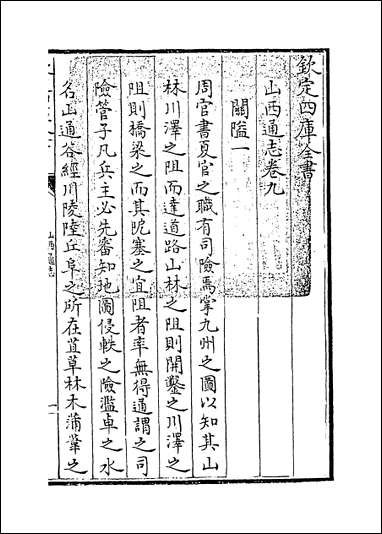 欽定四庫全書
山西通志卷九
關隘一
周官書夏官之職有司險焉掌九州之圖以知其山
林川澤之阻而達道路山林之阻則開鑿之川澤之
阻則橋梁之而其阨塞之宜阻者率無得通謂之司
險管子凡兵主必先審知地圖侵軼之險濫車之水
名山通谷經川陵陸丘阜之所在苴草林木蒲葦之
山西通志
一